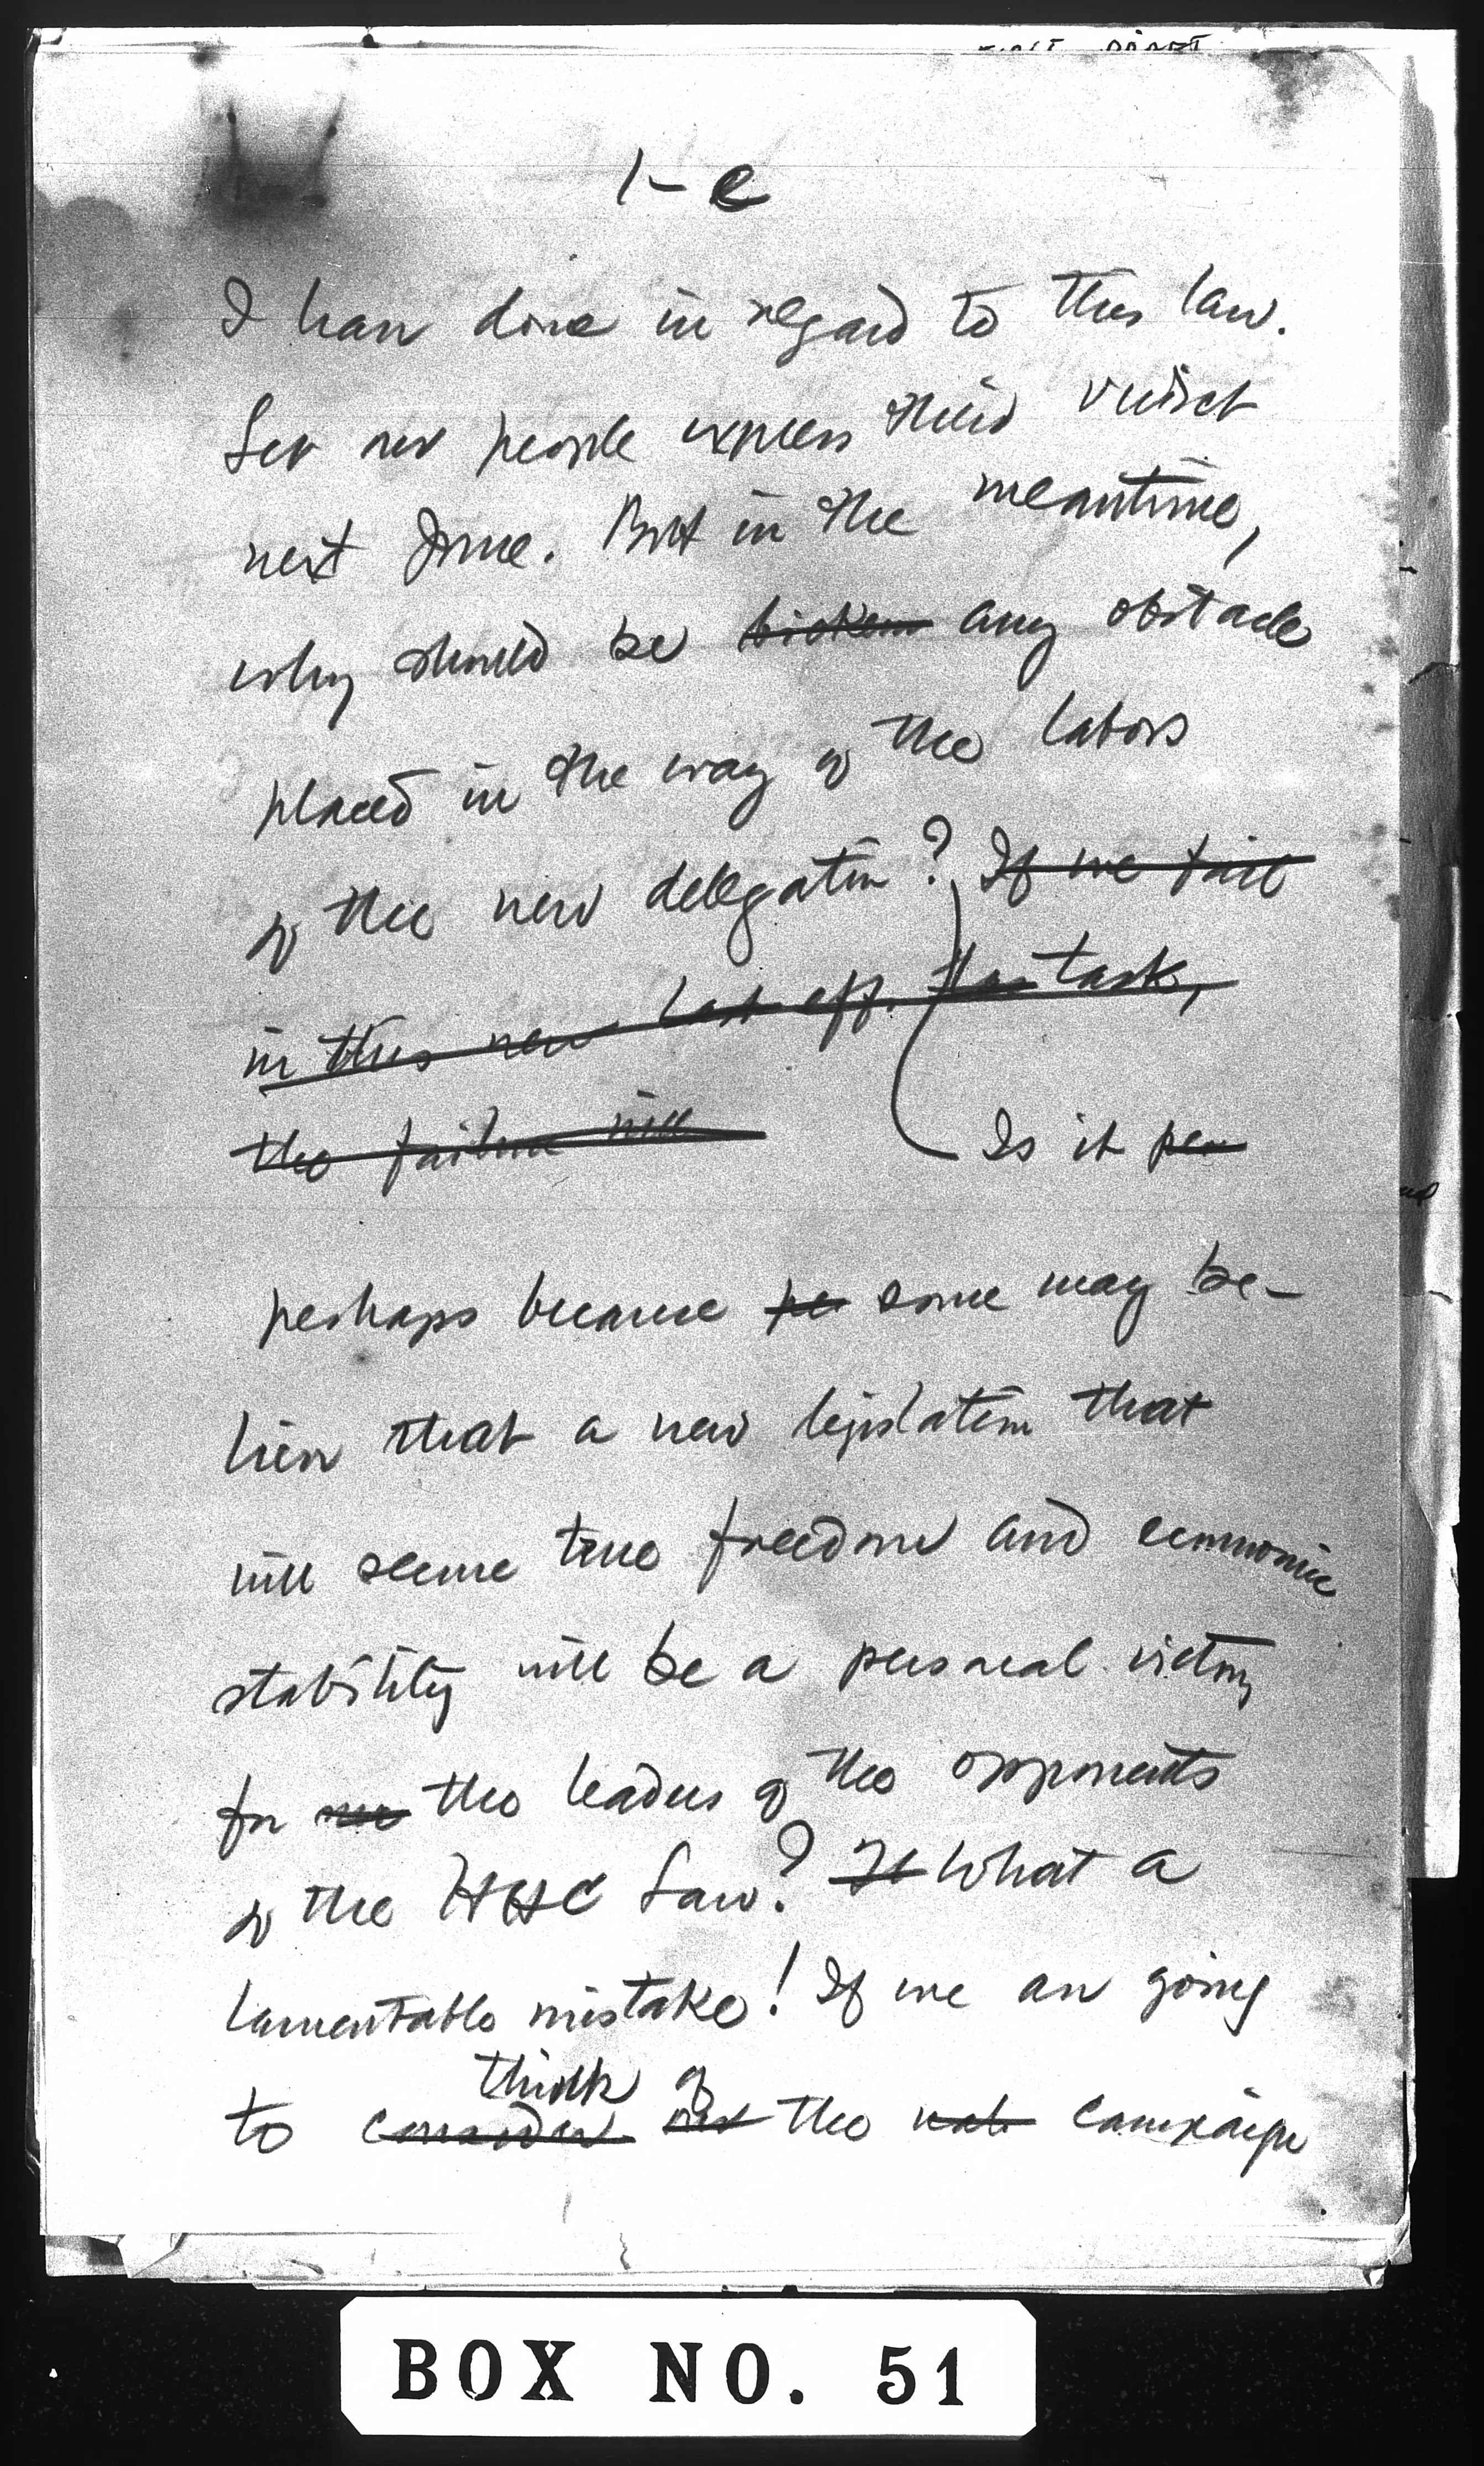 1-e
I have done in regard to this law.
Let our people express their verdict
next June. But in the meantime,
why should be broken any obstacle
placed in the way of the labors
of the new delegation? If we fail
in this new task,
the failure will Is it per
perhaps because per some may be-
lieve that a new legislation that
will secure true freedom and economic
stability will be a personal victory
for the leaders of the opponents
of the HHC Law? It What a
lamentable mistake! If we are going
think of
to consider the campaign
BOX NO. 51